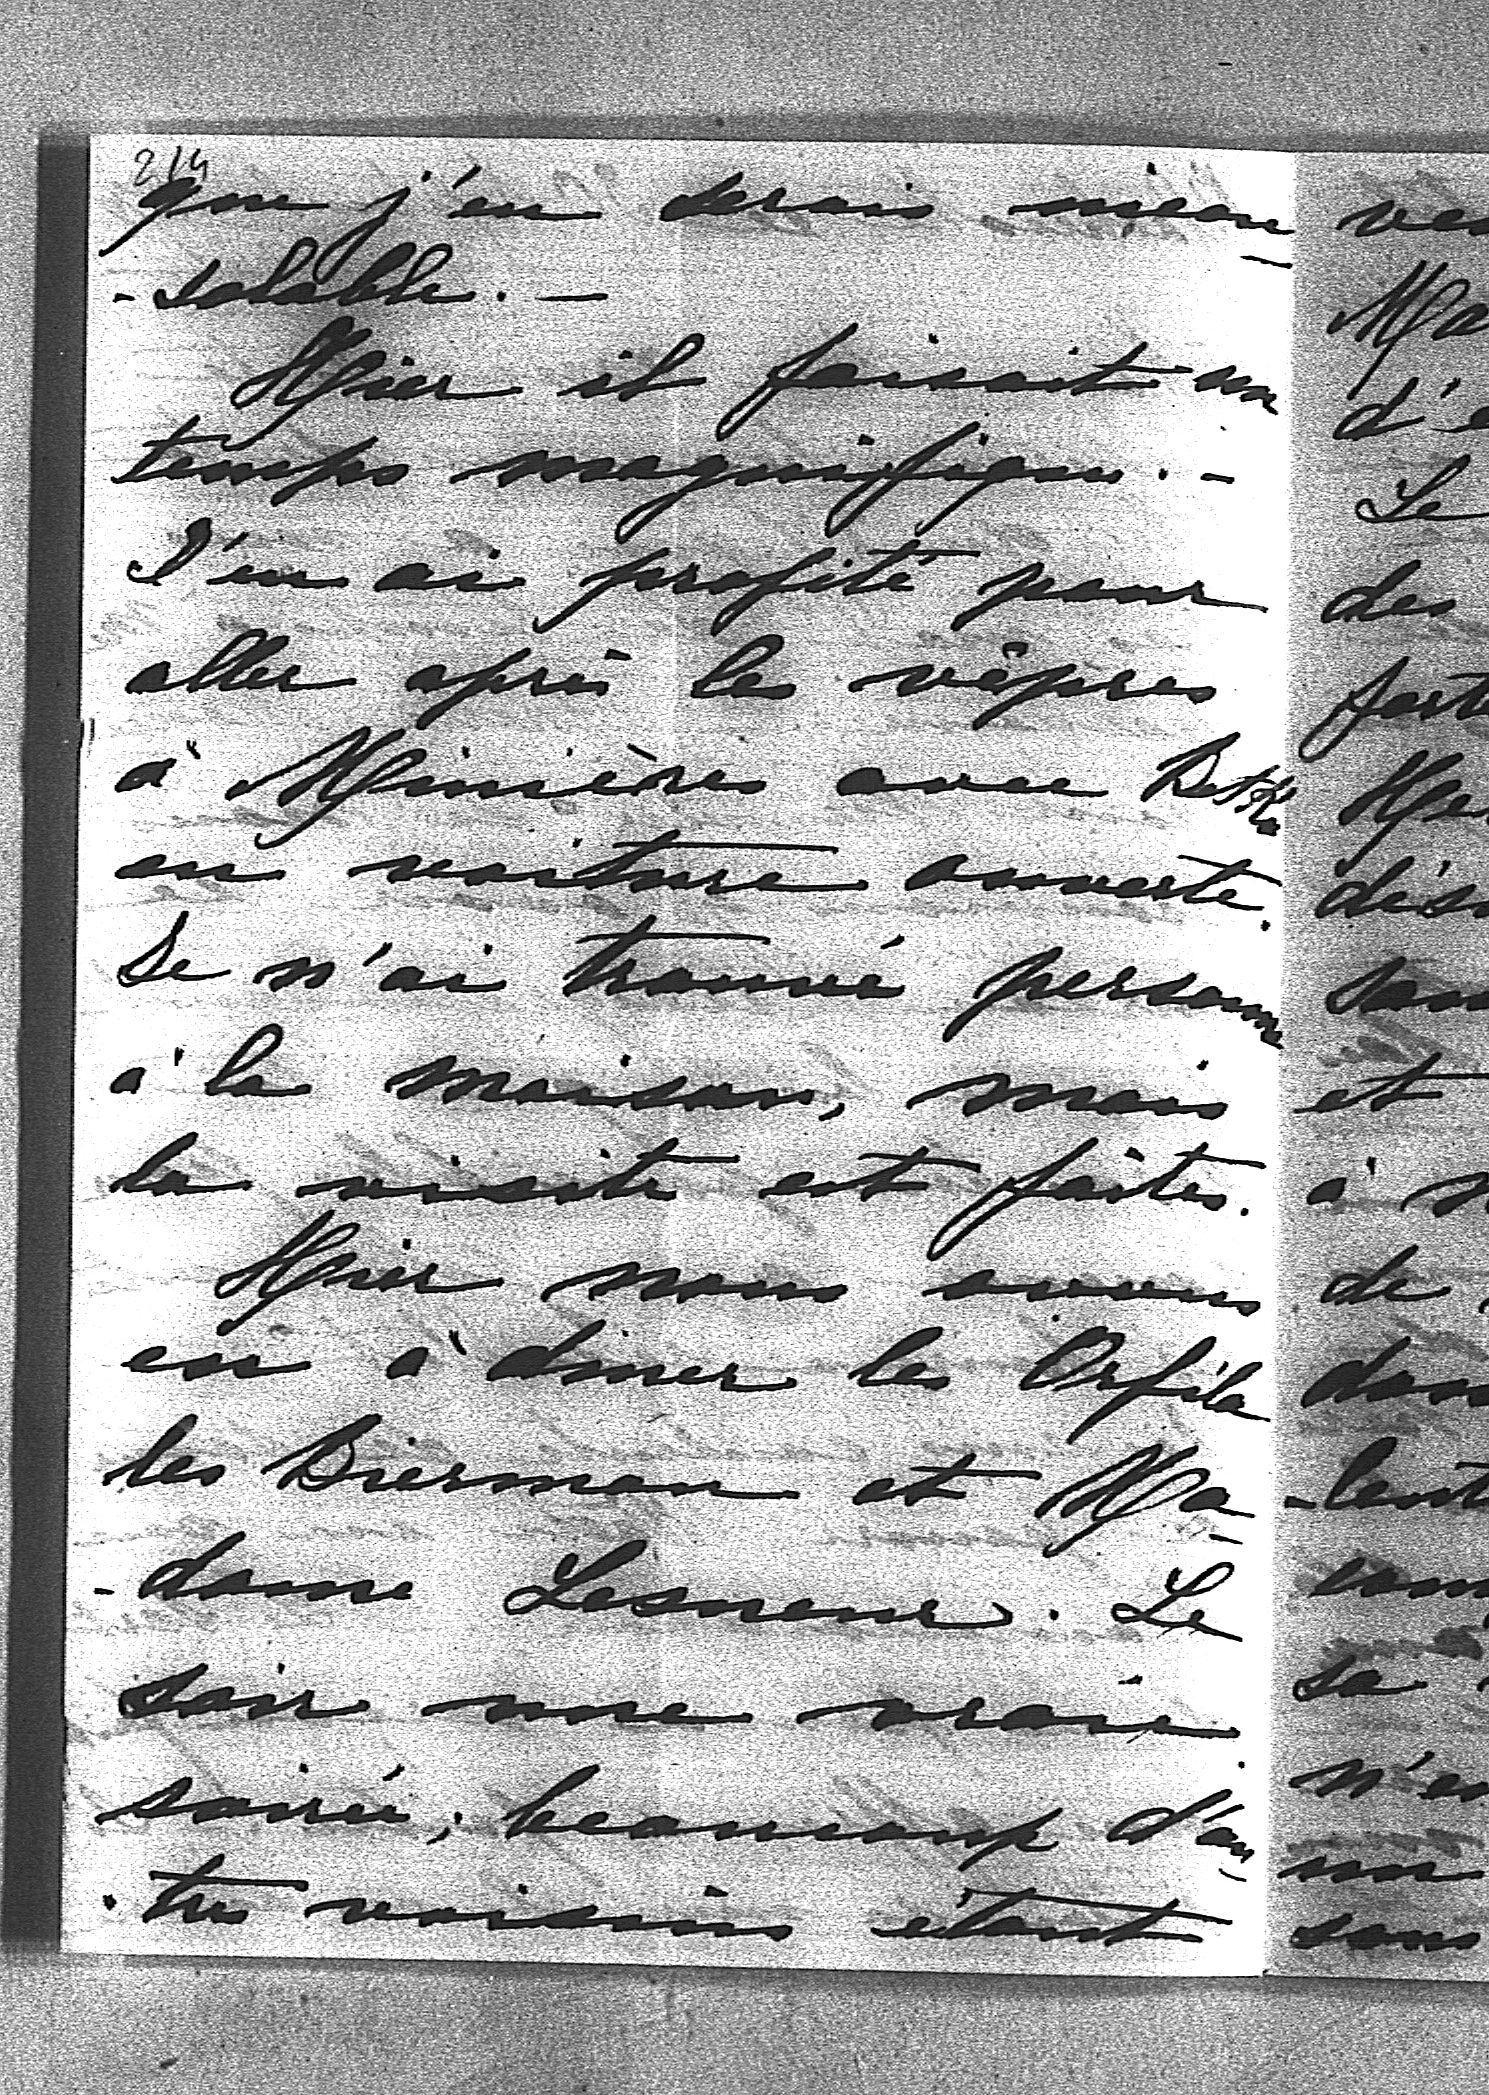 214
que j'en serais incon
-solable. -
Hier il faisait un
temps magnifique. -
J'en ai profité pour
aller après les vêpres
à Minières avec
en voiture ouverte.
Je n'ai trouvé personne
à la maison, mais
la visite est faites.
Hier nous avons
eu à diner les Orfila
les Bierman et Ma-
-dame Lesueur. Le
soir une vraie
soirée, beaucoup d'au-
-tres voisins étant
ves
Ma
d'e
Le
des
forte
Her
dés
sans
et
à n
de
dans
-lent
com
sa
n'en
un
sans